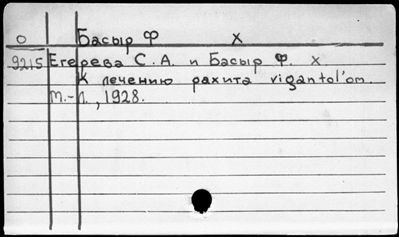 О Басыр Ф X
9215 Егерева С. А. и Басыр Ф. X.
К лечению рахита vigantol'ом.
М.-Л., 1928.